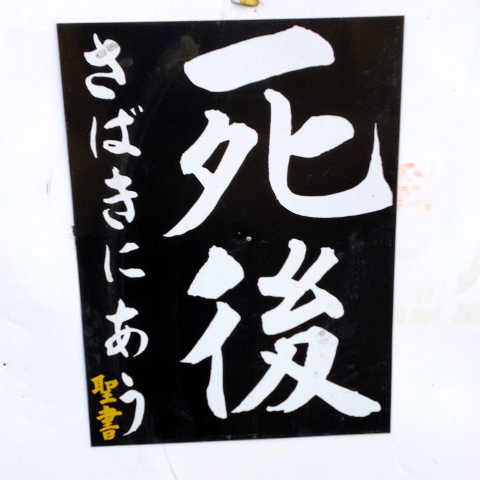 死後
さばきにあう
聖書